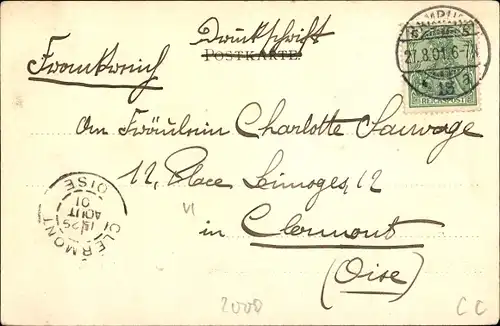 Druckschrift
POSTKARTE
Frankreich
An Fräulein Charlotte Sauvage
12, Place Limoges, 12
in Clermont
(Oise)
27.8.01. 6-7
REICHSPOST
CLERMONT
OISE
AOUT
01
VI
2008
CC